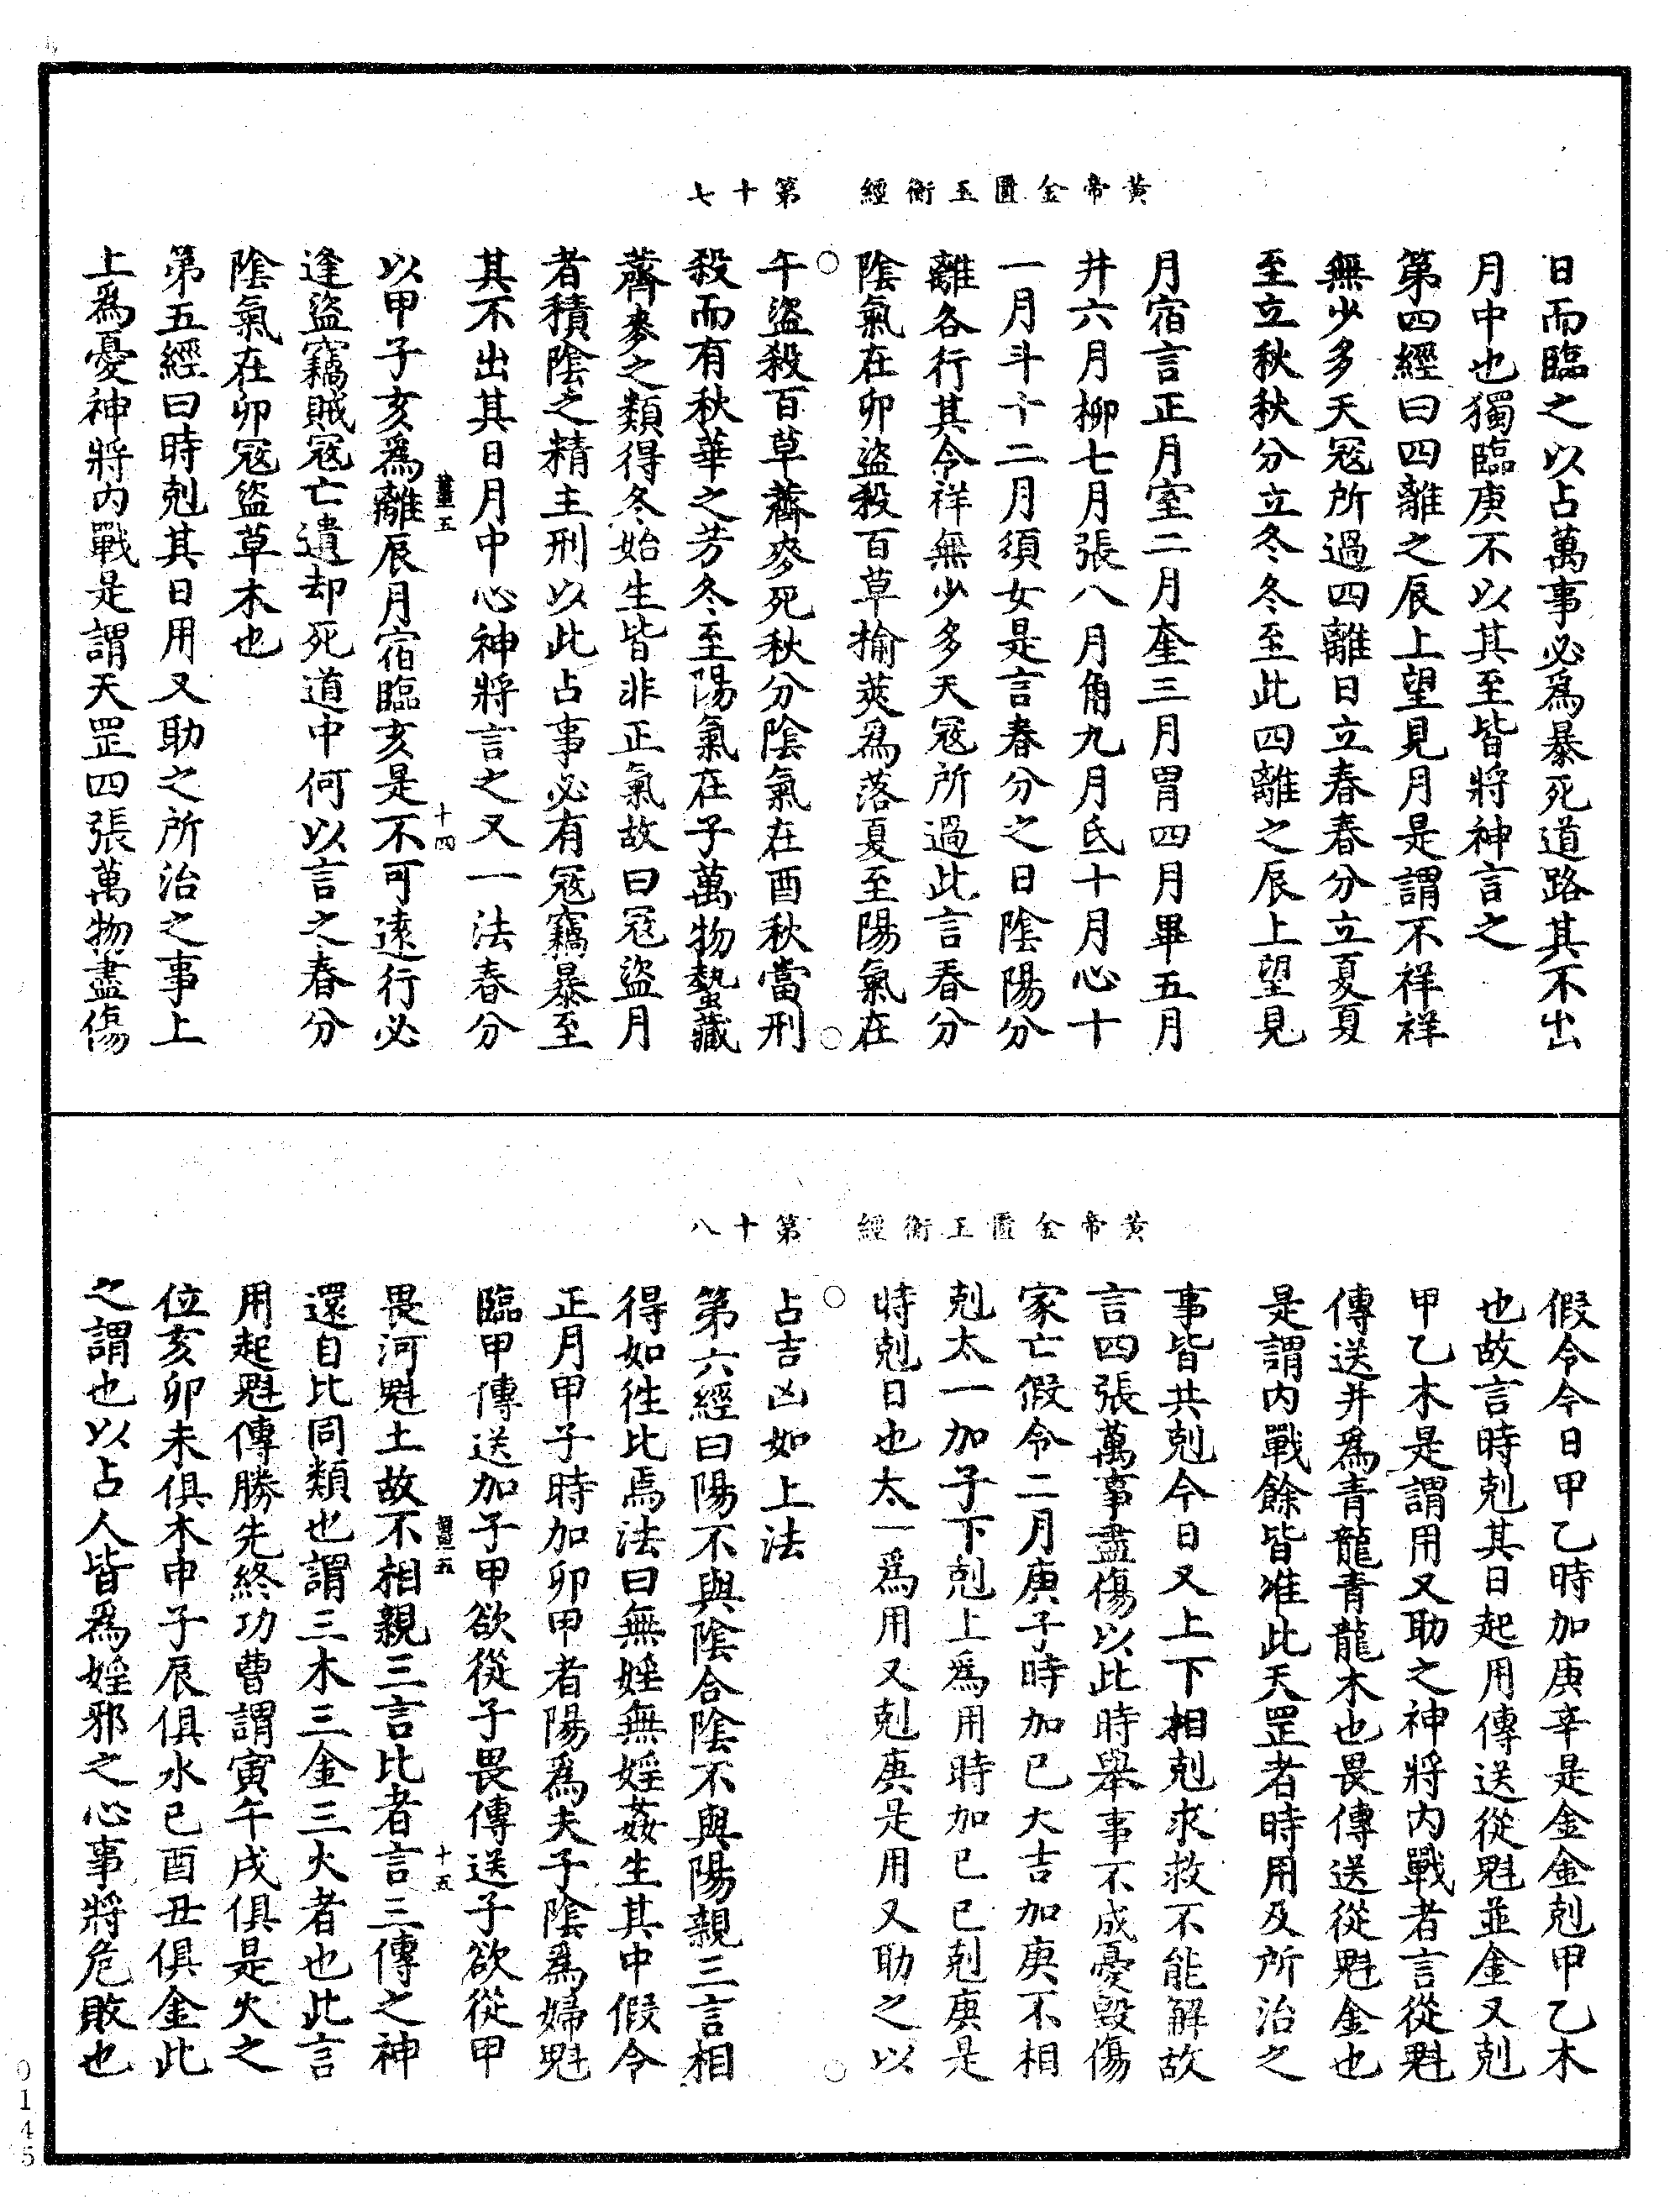 黃帝金匱玉衡經　第十七
日而臨之以占萬事必爲暴死道路其不出
月中也獨臨庚不以其至皆將神言之
第四經曰四離之辰上望見月是謂不祥祥
無少多天冦所過四離日立春春分立夏夏
至立秋秋分立冬冬至此四離之辰上望見
月宿言正月室二月奎三月胃四月畢五月
井六月柳七月張八月角九月氐十月心十
一月斗十二月須女是言春分之日陰陽分
離各行其令祥無少多天冦所過此言春分
陰氣在卯盜殺百草揄莢爲落夏至陽氣在
午盜殺百草薺麥死秋分陰氣在酉秋當刑
殺而有秋華之芳冬至陽氣在子萬物蟄藏
薺麥之類得冬始生皆非正氣故曰冦盜月
者積陰之精主刑以此占事必有冦竊暴至
其不出其日月中心神將言之又一法春分
十四
以甲子亥爲離辰月宿臨亥是不可遠行必
逢盜竊賊冦亡遺却死道中何以言之春分
陰氣在卯冦盜草木也
第五經曰時剋其日用又助之所治之事上
上爲憂神將內戰是謂天罡四張萬物盡傷
黃帝金匱玉衡經　第十八
假令今日甲乙時加庚辛是金金剋甲乙木
也故言時剋其日起用傳送從魁並金又剋
甲乙木是謂用又助之神將內戰者言從魁
傳送并爲青龍青龍木也畏傳送從魁金也
是謂內戰餘皆准此天罡者時用及所治之
事皆共剋今日又上下相剋求救不能解故
言四張萬事盡傷以此時舉事不成憂毀傷
家亡假令二月庚子時加巳大吉加庚不相
剋太一加子下剋上爲用時加巳巳剋庚是
時剋日也太一爲用又剋庚是用又助之以
占吉凶如上法
第六經曰陽不與陰合陰不與陽親三言相
得如往比焉法曰無婬無婬姦生其中假令
正月甲子時加卯甲者陽爲夫子陰爲婦魁
臨甲傳送加子甲欲從子畏傳送子欲從甲
十五
畏河魁土故不相親三言比者言三傳之神
還自比同類也謂三木三金三火者也此言
用起魁傳勝先終功曹謂寅午戌俱是火之
位亥卯未俱木申子辰俱水巳酉丑俱金此
之謂也以占人皆爲婬邪之心事將危敗也
0145